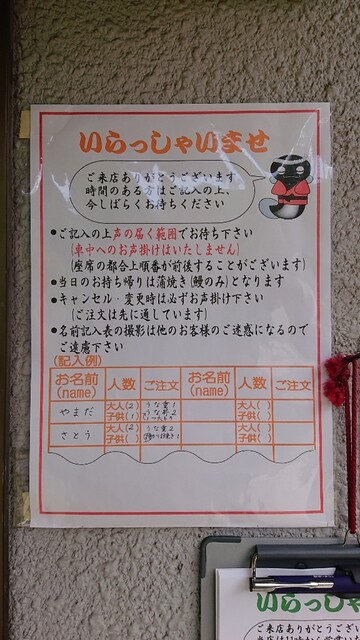 いらっしゃいませ
ご来店ありがとうございます
時間のある方はご記入の上、
今しばらくお待ちください
●ご記入の上声の届く範囲でお待ち下さい
(車中へのお声掛けはいたしません)
(座席の都合上順番が前後することがございます)
●当日のお持ち帰りは蒲焼き(鰻のみ)となります
●キャンセル・変更時は必ずお声掛け下さい
(ご注文は先に通しています)
●名前記入表の撮影は他のお客様のご迷惑になるので
ご遠慮下さい
(記入例)
お名前 人数 ご注文 お名前 人数 ご注文
(name) (name)
やまだ 大人(2) うな重1 大人( )
子供(1) うな丼2 子供( )
さとう 大人(2) うな重2 大人( )
子供( ) 子供( )
いらっしゃい
ご来店ありがとうござい